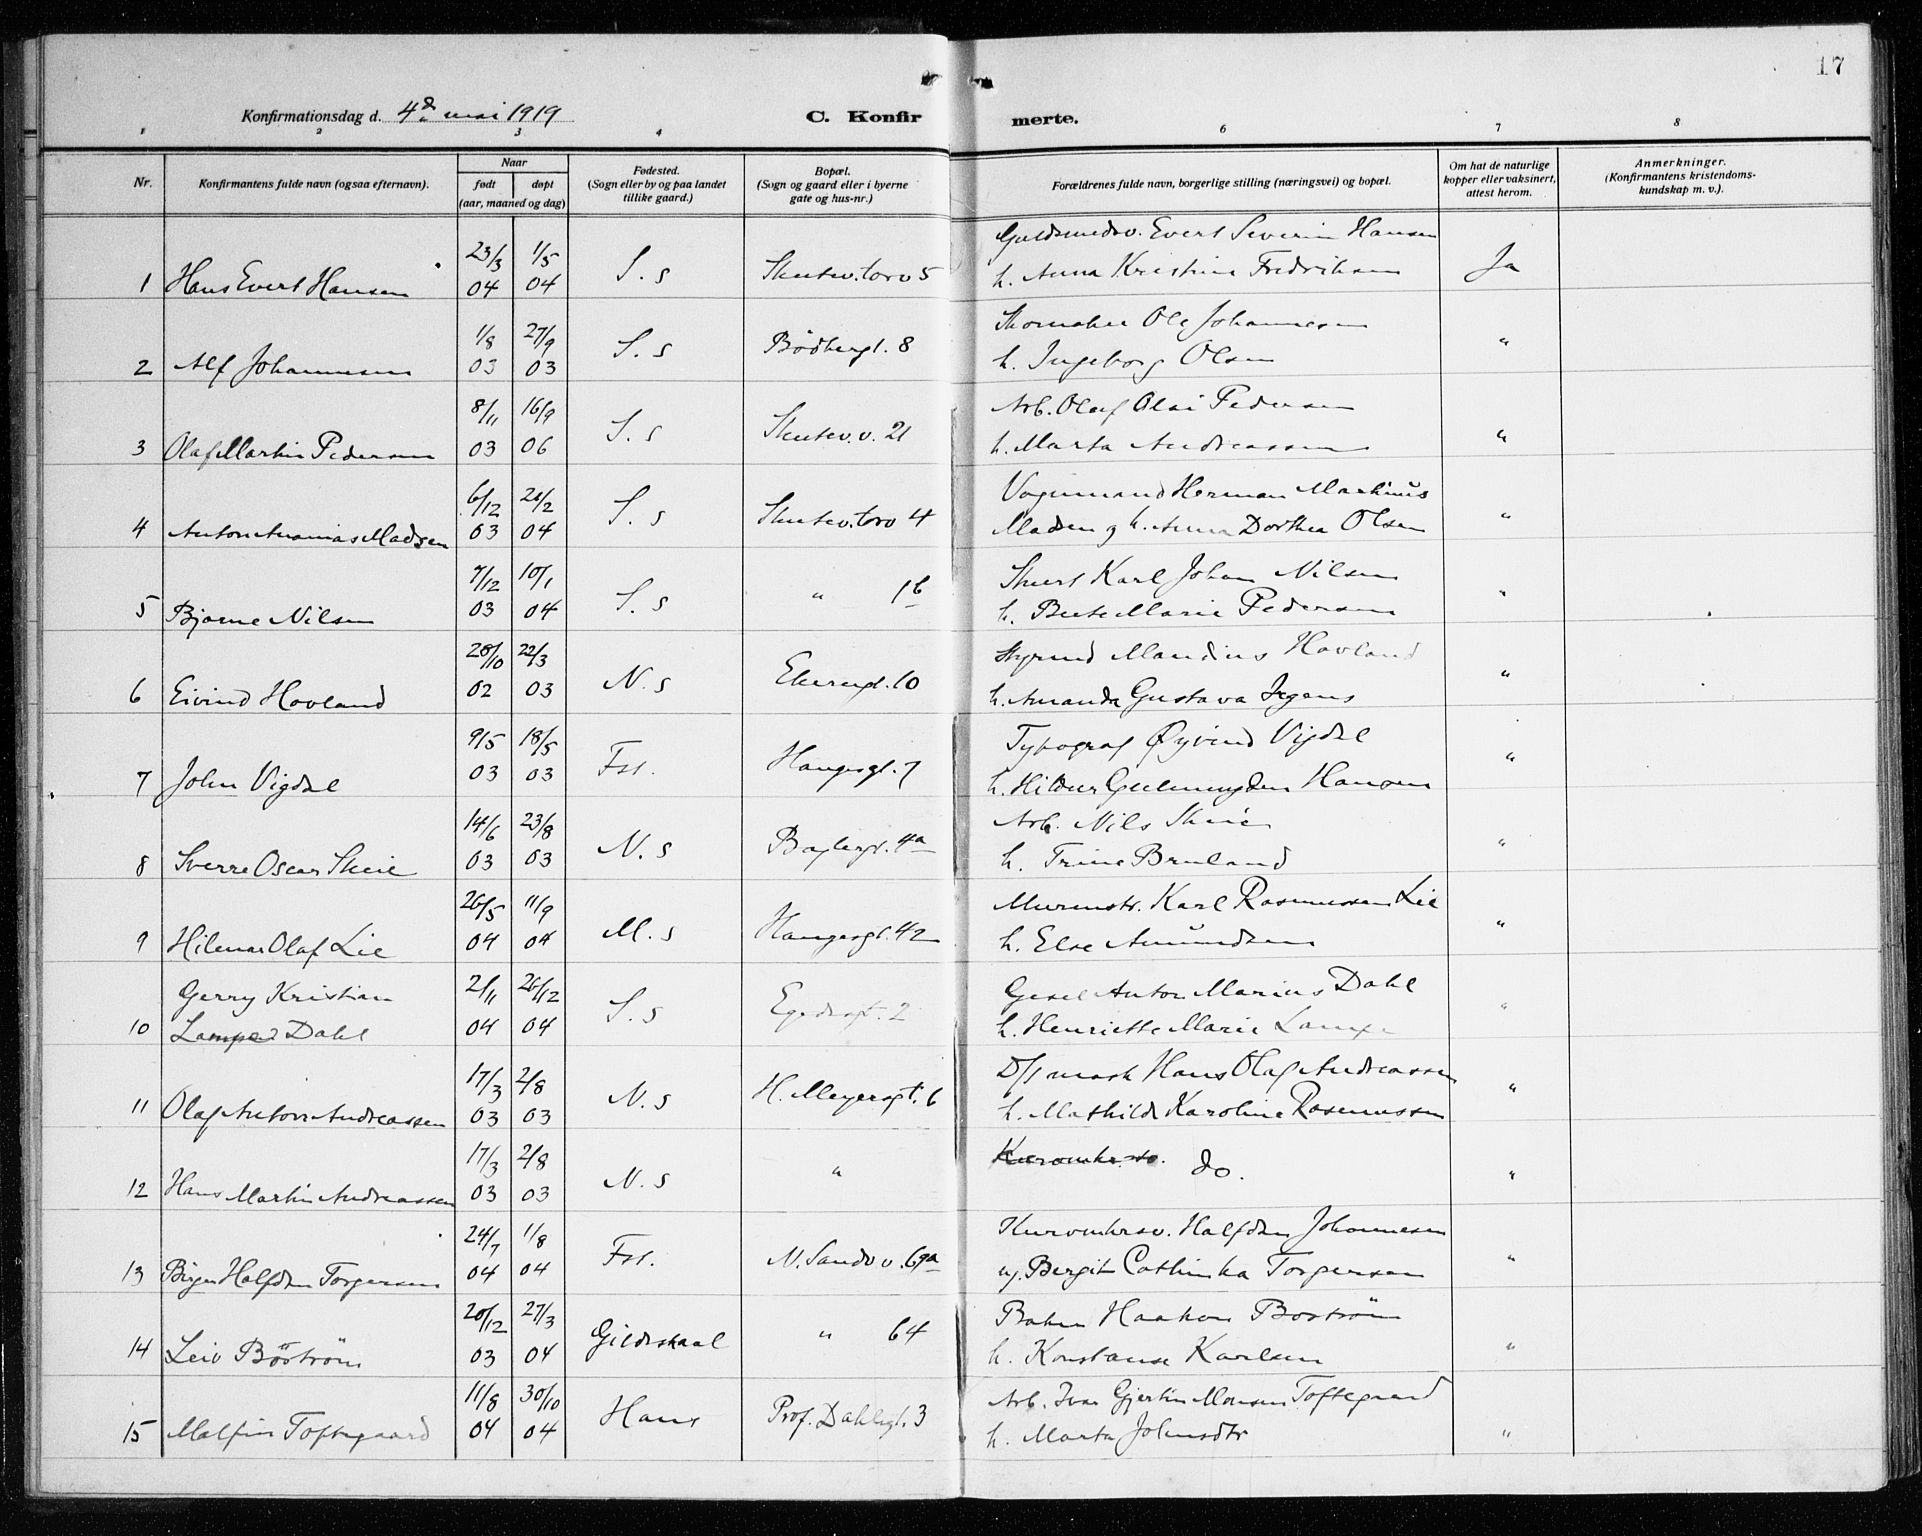 17
Konfirmationsdag d. 4de mai 1919
C. Konfirmerte.
1 2 3 4 6 7 8
Nr.
Konfirmantens fulde navn (ogsaa efternavn).
Naar
født døpt
(aar, maaned og dag)
Fødested.
(Sogn eller by og paa landet
tillike gaard.)
Bopæl.
(Sogn og gaard eller i byerne
gate og hus-nr.)
Forældrenes fulde navn, borgerlige stilling (næringsvei) og bopæl.
Om hat de naturlige
kopper eller vaksinert,
attest herom.
Anmerkninger.
(Konfirmantens kristendoms-
kundskap m. v.).
23/3 1/5 Guldsmedsv. Evert Severin Hansen
1 Hans Evert Hansen 04 04 S. s Skutev. torv 5 h. Anna Kristine Fredriksen Ja
1/8 27/9 Skomaker Ole Johannesen
2 Alf Johannesen 03 03 S. s Bödkergt. 8 h. Ingeborg Olsen "
8/11 16/9 Arb. Olaf Olai Pedersen
3 Olaf Martin Pedersen 03 06 S. s Skutev. v. 21 h. Marta Andreassen "
6/12 21/2 Vognmand Herman Martinus
4 Anton Ananias Madsen 03 04 S. s Skutev. torv 4 Madsen og h. Anna Dorthea Olsen "
7/12 10/1 Karl Johan Nilsen
5 Bjarne Nilsen 03 04 S. s " 1b h. Berte Marie Pedersen "
28/10 22/3 Styrmd Mandius Hovland
6 Eivind Hovland 02 03 N. s 10 h. Amanda Gustava Irgens "
9/5 18/5 Typograf Øyvind Vigdal
7 John Vigdal 03 03 Fst. Haugesgt. 7 h. Hildur Hansen "
14/6 23/8 Arb. Nils Skeie
8 Sverre Oscar Skeie 03 03 N. s Baglergt. 4a h. Trine Bruland "
26/5 11/9 Murmstr. Karl Rasmussen Lie
9 Hilmar Olaf Lie 04 04 M. s Haugesgt. 42 h. Else Amundsen "
Gerry Kristian 2/11 26/12 Gesel Anton Marius Dahl
10 Lampe Dahl 04 04 S. s Egedesgt. 2 h. Henriette Marie Lampe "
17/3 2/8 D/s mask Hans Olaf Andreassen
11 Olaf Anton Andreassen 03 03 N. s H. Meyersgt. 6 h. Mathilde Karoline Rasmussen "
17/3 2/8 do.
12 Hans Martin Andreassen 03 03 N. s " "
24/7 1/8 Kurvmkrsv. Halfdan Johannesen
13 Birger Halfdan Torgersen 04 04 Fst. N. Sandv v. 69a ug. Bergit Cathinka Torgersen "
20/12 27/3 Baker Haakon Boström
14 Leiv Böström 03 04 Gildeskaal " 64 h. Konstanse Karlsen "
11/8 30/10 Arb. Ivar Gjertin Monsen Toftegaard
15 Malfin Toftegaard 04 04 Haus Prof. Dahlsgt. 3 h. Marta Johnsdtr "